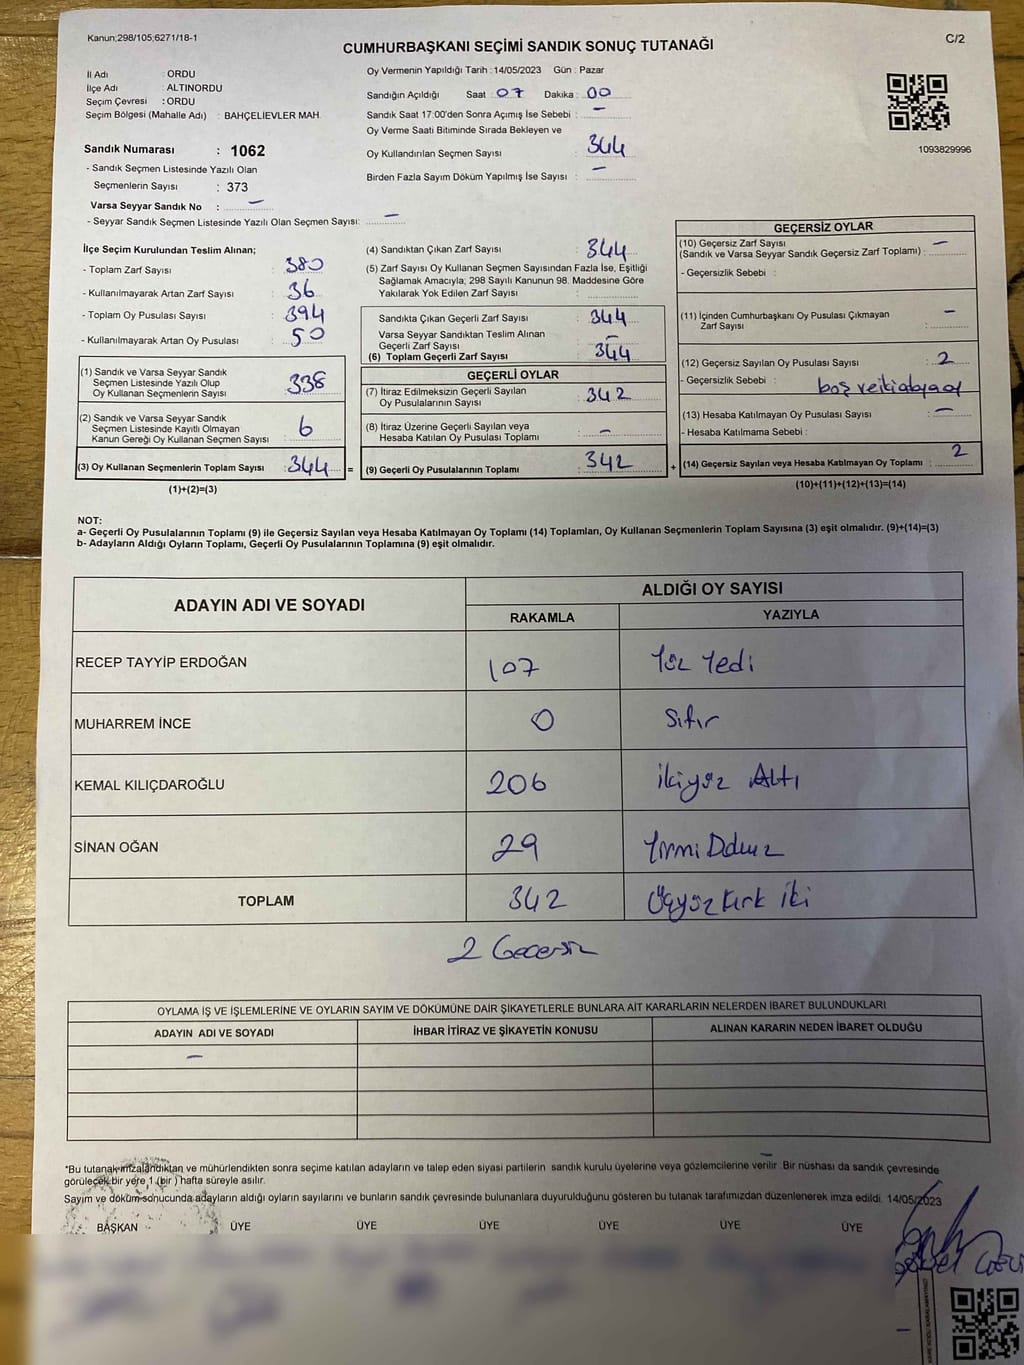 Kanun;298/105;6271/18-1
C/2
CUMHURBAŞKANI SEÇİMİ SANDIK SONUÇ TUTANAĞI
İl Adı : ORDU
İlçe Adı : ALTINORDU
Seçim Çevresi : ORDU
Seçim Bölgesi (Mahalle Adı) : BAHÇELİEVLER MAH.
Sandık Numarası : 1062
- Sandık Seçmen Listesinde Yazılı Olan
Seçmenlerin Sayısı : 373
Varsa Seyyar Sandık No : —
- Seyyar Sandık Seçmen Listesinde Yazılı Olan Seçmen Sayısı: —
Oy Vermenin Yapıldığı Tarih : 14/05/2023 Gün : Pazar
Sandığın Açıldığı Saat : 07 Dakika : 00
Sandık Saat 17:00'den Sonra Açımış İse Sebebi : —
Oy Verme Saati Bitiminde Sırada Bekleyen ve
Oy Kullandırılan Seçmen Sayısı : 344
Birden Fazla Sayım Döküm Yapılmış İse Sayısı : —
1093829996
İlçe Seçim Kurulundan Teslim Alınan;
- Toplam Zarf Sayısı : 380
- Kullanılmayarak Artan Zarf Sayısı : 36
- Toplam Oy Pusulası Sayısı : 394
- Kullanılmayarak Artan Oy Pusulası : 50
(1) Sandık ve Varsa Seyyar Sandık
Seçmen Listesinde Yazılı Olup
Oy Kullanan Seçmenlerin Sayısı : 338
(2) Sandık ve Varsa Seyyar Sandık
Seçmen Listesinde Kayıtlı Olmayan
Kanun Gereği Oy Kullanan Seçmen Sayısı : 6
(3) Oy Kullanan Seçmenlerin Toplam Sayısı : 344 =
(1)+(2)=(3)
(4) Sandıktan Çıkan Zarf Sayısı : 344
(5) Zarf Sayısı Oy Kullanan Seçmen Sayısından Fazla İse, Eşitliği
Sağlamak Amacıyla; 298 Sayılı Kanunun 98. Maddesine Göre
Yakılarak Yok Edilen Zarf Sayısı :
Sandıkta Çıkan Geçerli Zarf Sayısı : 344
Varsa Seyyar Sandıktan Teslim Alınan
Geçerli Zarf Sayısı : —
(6) Toplam Geçerli Zarf Sayısı : 344
GEÇERLİ OYLAR
(7) İtiraz Edilmeksizin Geçerli Sayılan
Oy Pusulalarının Sayısı : 342
(8) İtiraz Üzerine Geçerli Sayılan veya
Hesaba Katılan Oy Pusulası Toplamı : —
(9) Geçerli Oy Pusulalarının Toplamı : 342 +
GEÇERSİZ OYLAR
(10) Geçersiz Zarf Sayısı
(Sandık ve Varsa Seyyar Sandık Geçersiz Zarf Toplamı) : —
- Geçersizlik Sebebi :
(11) İçinden Cumhurbaşkanı Oy Pusulası Çıkmayan
Zarf Sayısı : —
(12) Geçersiz Sayılan Oy Pusulası Sayısı : 2
- Geçersizlik Sebebi : boş ve
(13) Hesaba Katılmayan Oy Pusulası Sayısı : —
- Hesaba Katılmama Sebebi :
(14) Geçersiz Sayılan veya Hesaba Katılmayan Oy Toplamı : 2
(10)+(11)+(12)+(13)=(14)
NOT:
a- Geçerli Oy Pusulalarının Toplamı (9) ile Geçersiz Sayılan veya Hesaba Katılmayan Oy Toplamı (14) Toplamları, Oy Kullanan Seçmenlerin Toplam Sayısına (3) eşit olmalıdır. (9)+(14)=(3)
b- Adayların Aldığı Oyların Toplamı, Geçerli Oy Pusulalarının Toplamına (9) eşit olmalıdır.
ADAYIN ADI VE SOYADI
ALDIĞI OY SAYISI
RAKAMLA YAZIYLA
RECEP TAYYİP ERDOĞAN 107 Yüz Yedi
MUHARREM İNCE 0 Sıfır
KEMAL KILIÇDAROĞLU 206 İkiyüz Altı
SİNAN OĞAN 29 Yirmi Dokuz
TOPLAM 342 Üçyüz kırk iki
2 Geçersiz
OYLAMA İŞ VE İŞLEMLERİNE VE OYLARIN SAYIM VE DÖKÜMÜNE DAİR ŞİKAYETLERLE BUNLARA AİT KARARLARIN NELERDEN İBARET BULUNDUKLARI
ADAYIN ADI VE SOYADI İHBAR İTİRAZ VE ŞİKAYETİN KONUSU ALINAN KARARIN NEDEN İBARET OLDUĞU
—
*Bu tutanak imzalandıktan ve mühürlendikten sonra seçime katılan adayların ve talep eden siyasi partilerin sandık kurulu üyelerine veya gözlemcilerine verilir. Bir nüshası da sandık çevresinde
görülecek bir yere 1 (bir) hafta süreyle asılır.
Sayım ve döküm sonucunda adayların aldığı oyların sayılarını ve bunların sandık çevresinde bulunanlara duyurulduğunu gösteren bu tutanak tarafımızdan düzenlenerek imza edildi. 14/05/2023
BAŞKAN ÜYE ÜYE ÜYE ÜYE ÜYE ÜYE